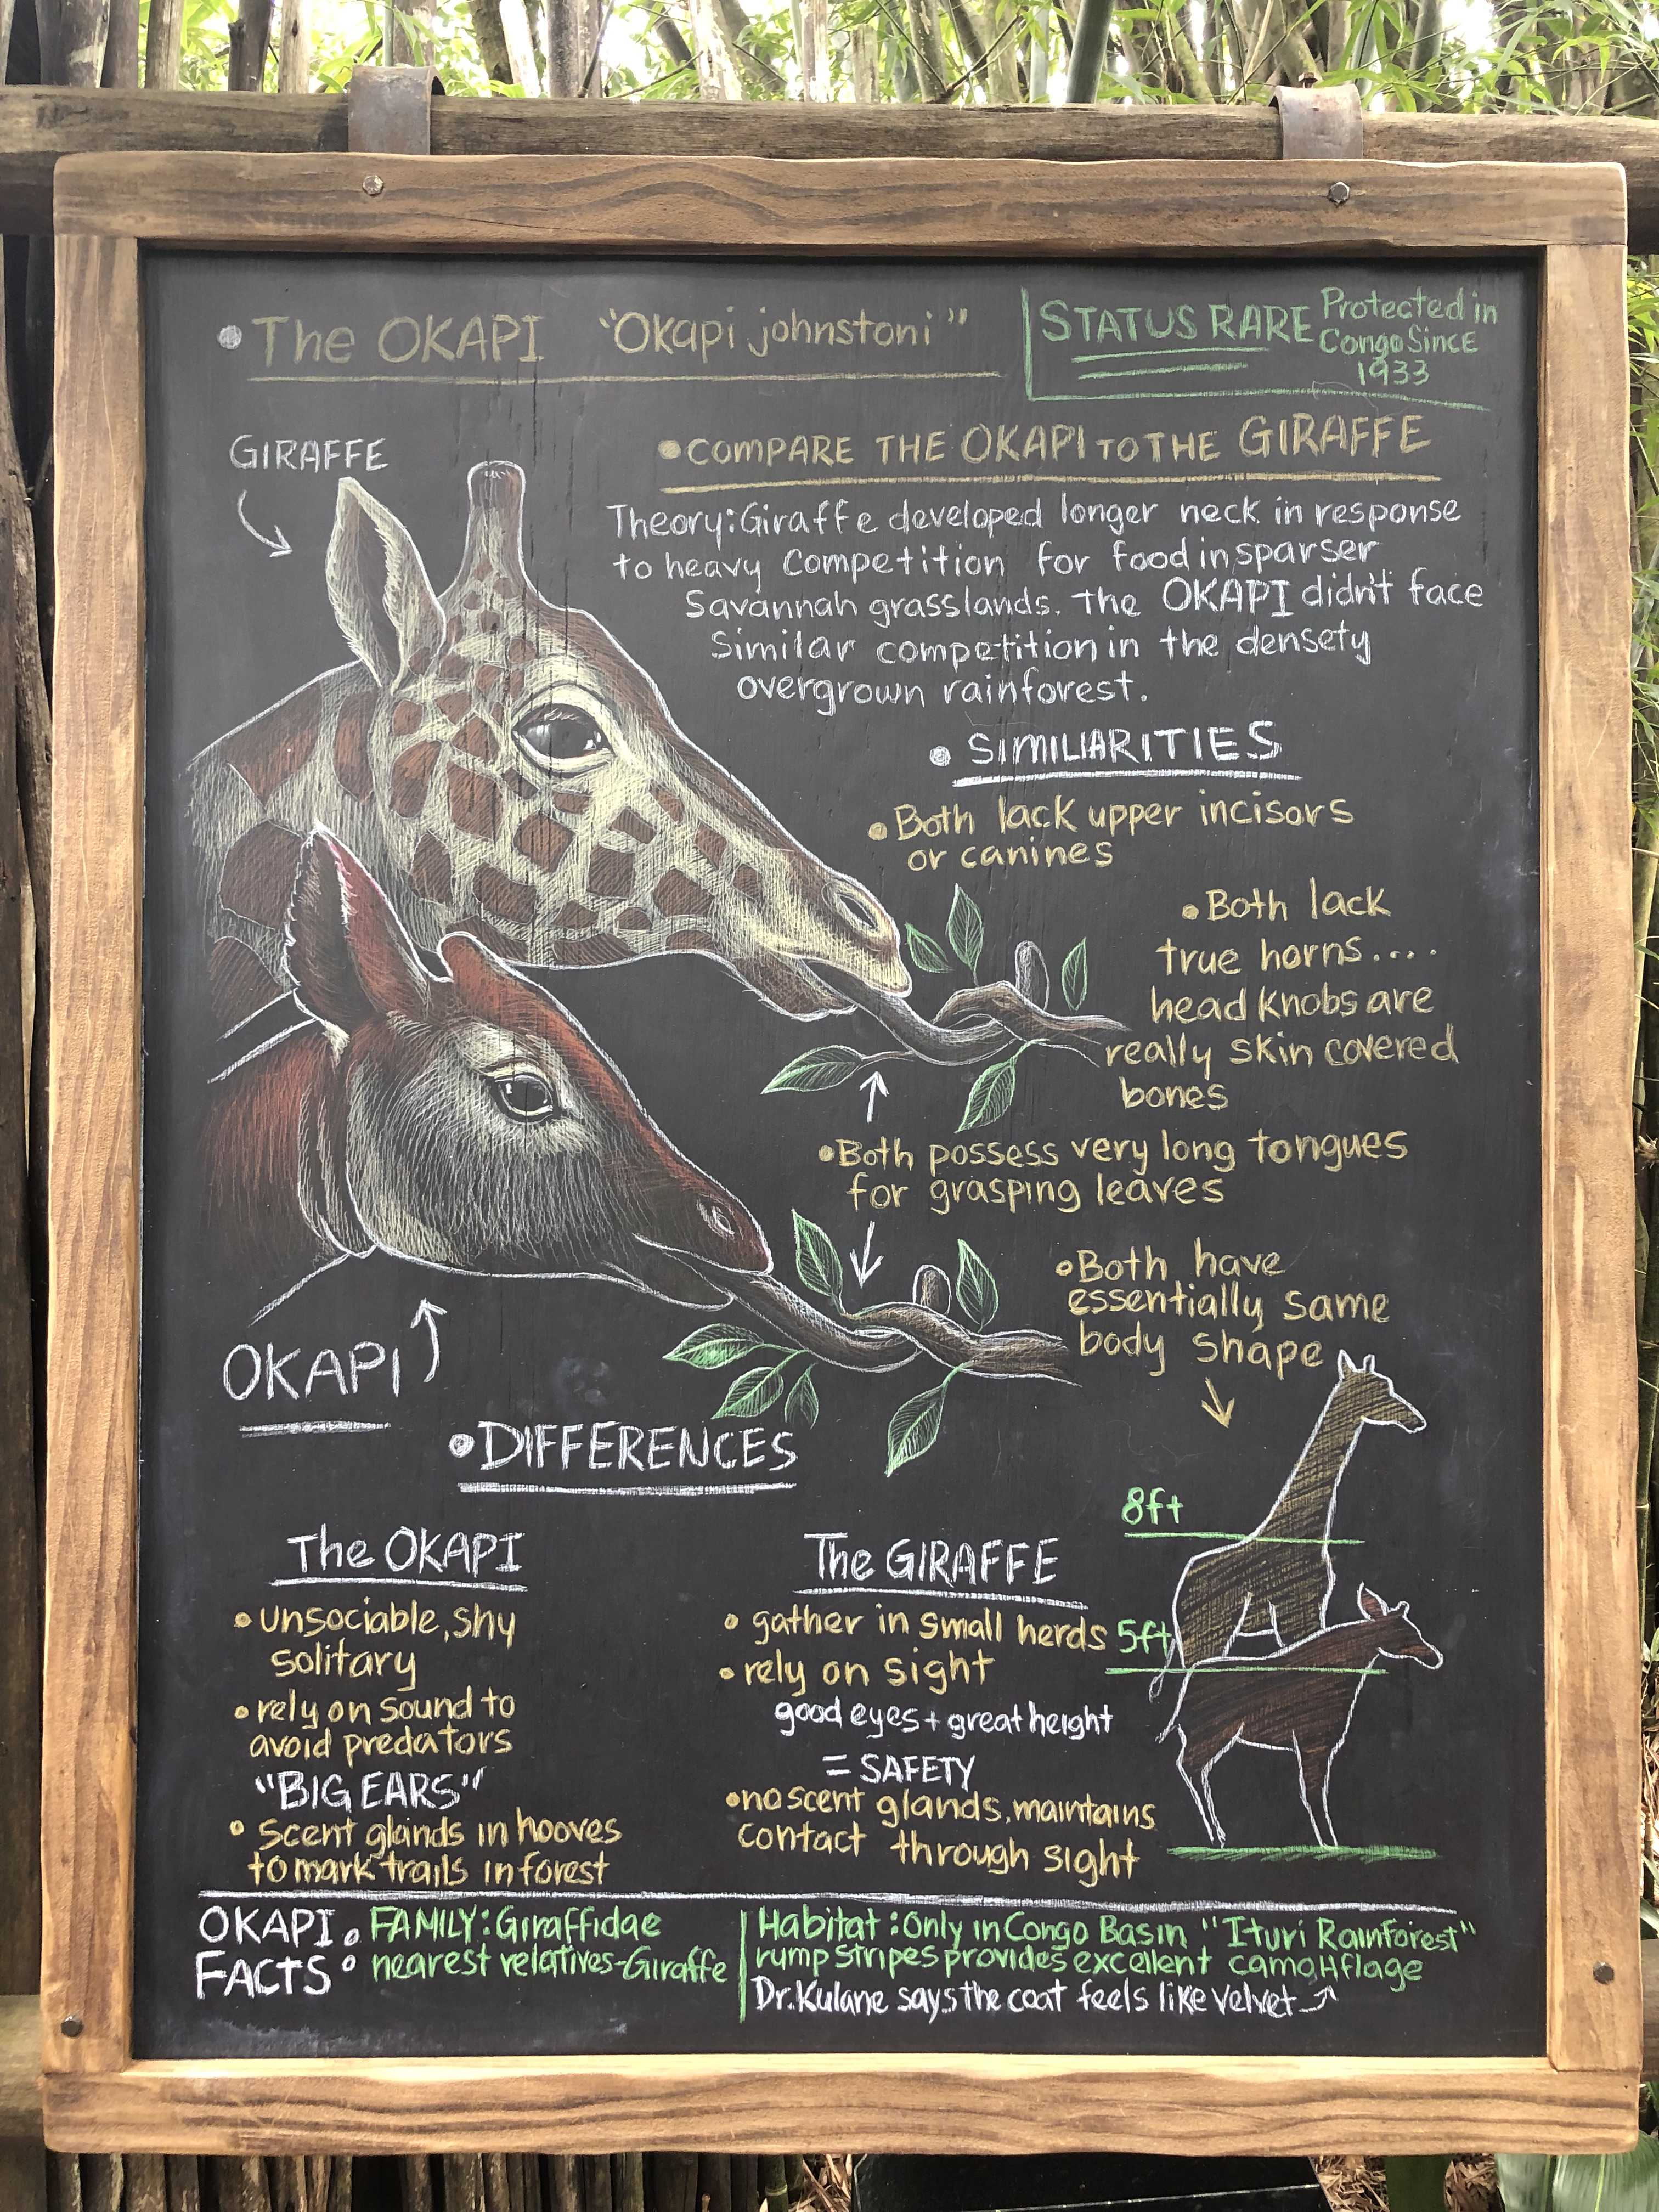 The OKAPI "Okapi johnstoni"
STATUS RARE
Protected in
Congo Since
1933
GIRAFFE
COMPARE THE OKAPI TO THE GIRAFFE
Theory: Giraffe developed longer neck in response
to heavy competition for food in sparser
Savannah grasslands. The OKAPI didn't face
Similar competition in the densety
overgrown rainforest.
SIMILIARITIES
Both lack upper incisors
or canines
Both lack
true horns....
head knobs are
really skin covered
bones
Both possess very long tongues
for grasping leaves
Both have
essentially same
body shape
OKAPI
DIFFERENCES
The OKAPI
unsociable, shy
solitary
rely on sound to
avoid predators
"BIG EARS"
Scent glands in hooves
to mark trails in forest
The GIRAFFE
gather in small herds
rely on sight
good eyes + great height
= SAFETY
no scent glands, maintains
contact through sight
8ft
5ft
OKAPI
FACTS
FAMILY: Giraffidae
nearest relatives-Giraffe
Habitat: Only in Congo Basin "Ituri Rainforest"
rump stripes provides excellent camoflage
Dr. Kulane says the coat feels like velvet